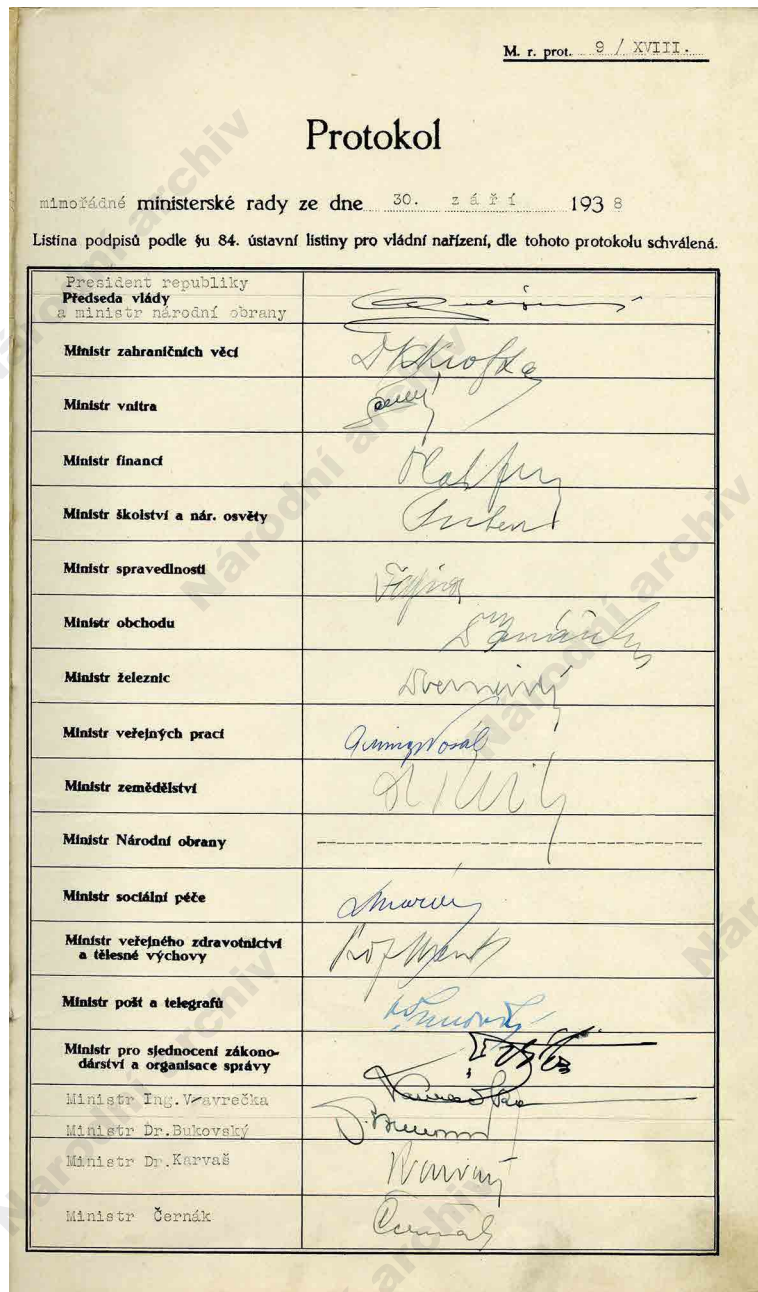 M. r. prot. 9 / XVIII.
Protokol
mimořádné ministerské rady ze dne 30. září 1938
Listina podpisů podle §u 84. ústavní listiny pro vládní nařízení, dle tohoto protokolu schválená.
President republiky
Předseda vlády
a ministr národní obrany
Ministr zahraničních věcí
Dr K Krofta
Ministr vnitra
Ministr financí
Ministr školství a nár. osvěty
Ministr spravedlnosti
Fajnor
Ministr obchodu
Ministr železnic
Ministr veřejných prací
Ministr zemědělství
Ministr Národní obrany
Ministr sociální péče
Ministr veřejného zdravotnictví
a tělesné výchovy
Ministr pošt a telegrafů
Ministr pro sjednocení zákono-
dárství a organisace správy
Ministr Ing. Vavrečka
Vavrečka
Ministr Dr. Bukovský
Ministr Dr. Karvaš
Ministr Černák
Černák
Národní archiv
Národní archiv
Národní archiv
Národní archiv
Národní archiv